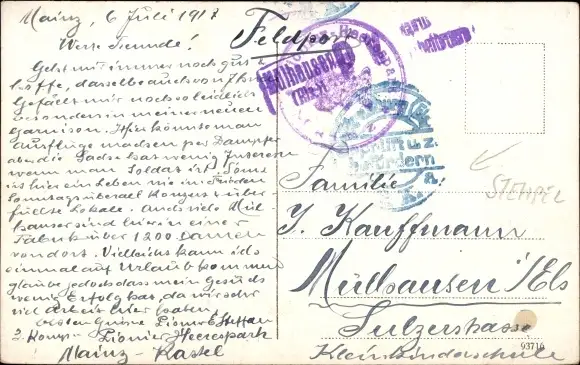 Mainz, 6 Juli 1917
Werte Freunde!
Geht mir immer noch gut
hoffe, dasselbe auch von Ihnen
Gefällt mir noch so leidlich
besonders in meiner neuen
Garnison. Hier könnte man
Ausflüge machen per Dampfer
aber die Sache hat wenig Interesse
wenn man Soldat ist. Sonst
ist hier ein Leben wie im Frieden
Sonntags überall Konzert über
füllte Lokale. Auch viele Mül
hauser sind hier in einer
Fabrik über 1200 Damen
von dort. Vielleicht kann ich
einmal auf Urlaub kommen
glaube jedoch dass mein Gesuch
wenig Erfolg hat, da wir sehr
viel Arbeit hier haben.
besten Grüsse Pionier
3. Komp. Pionier Heerespark
Mainz-Kastel
Feldpost
Mülhausen
(Els.)
Geprüft u. z.
befördern
Familie
J. Kauffmann
Mülhausen i/Els
Sulzerstrasse
Kleinkinderschule
STEMPEL
93716